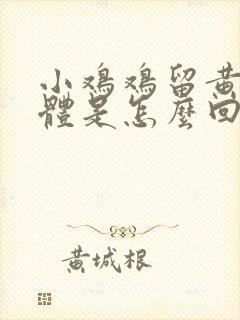 小鸡鸡留黄
體是怎麼回
黄城根